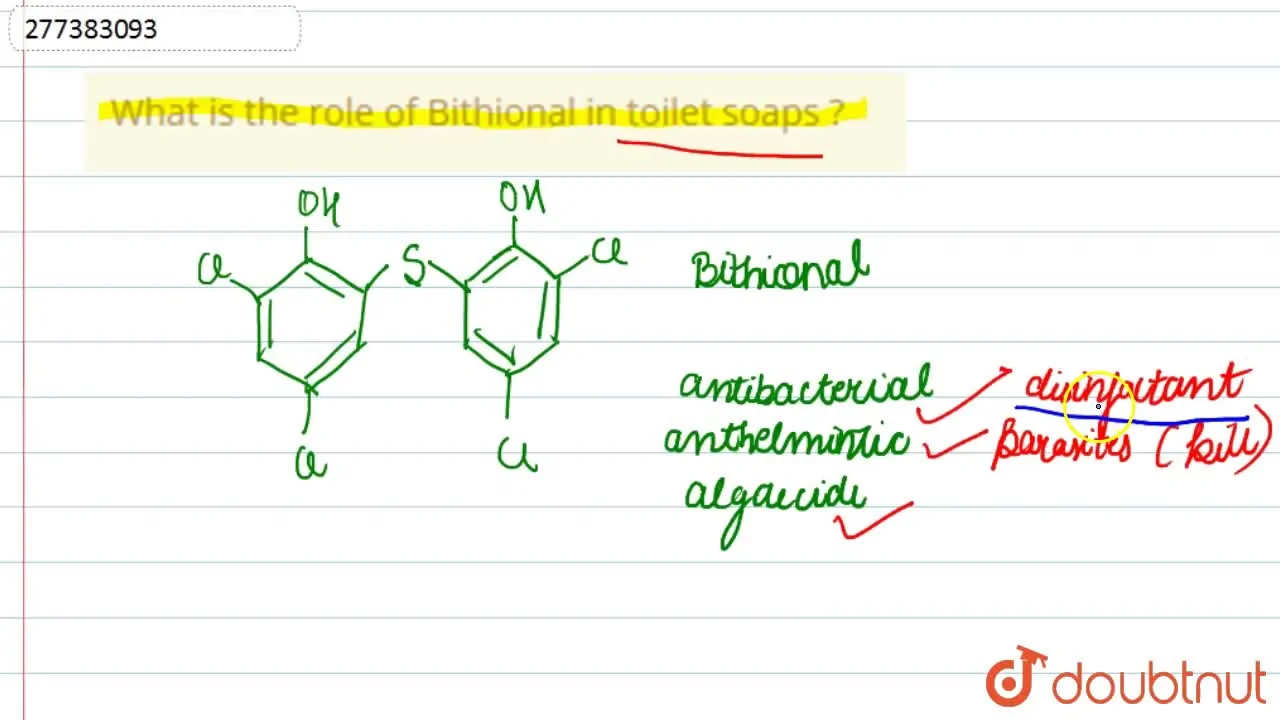 277383093
What is the role of Bithional in toilet soaps ?
OH OH
Cl S Cl
Bithional
Cl Cl
antibacterial disinfectant
anthelmintic Parasites (kill)
algaecide
doubtnut